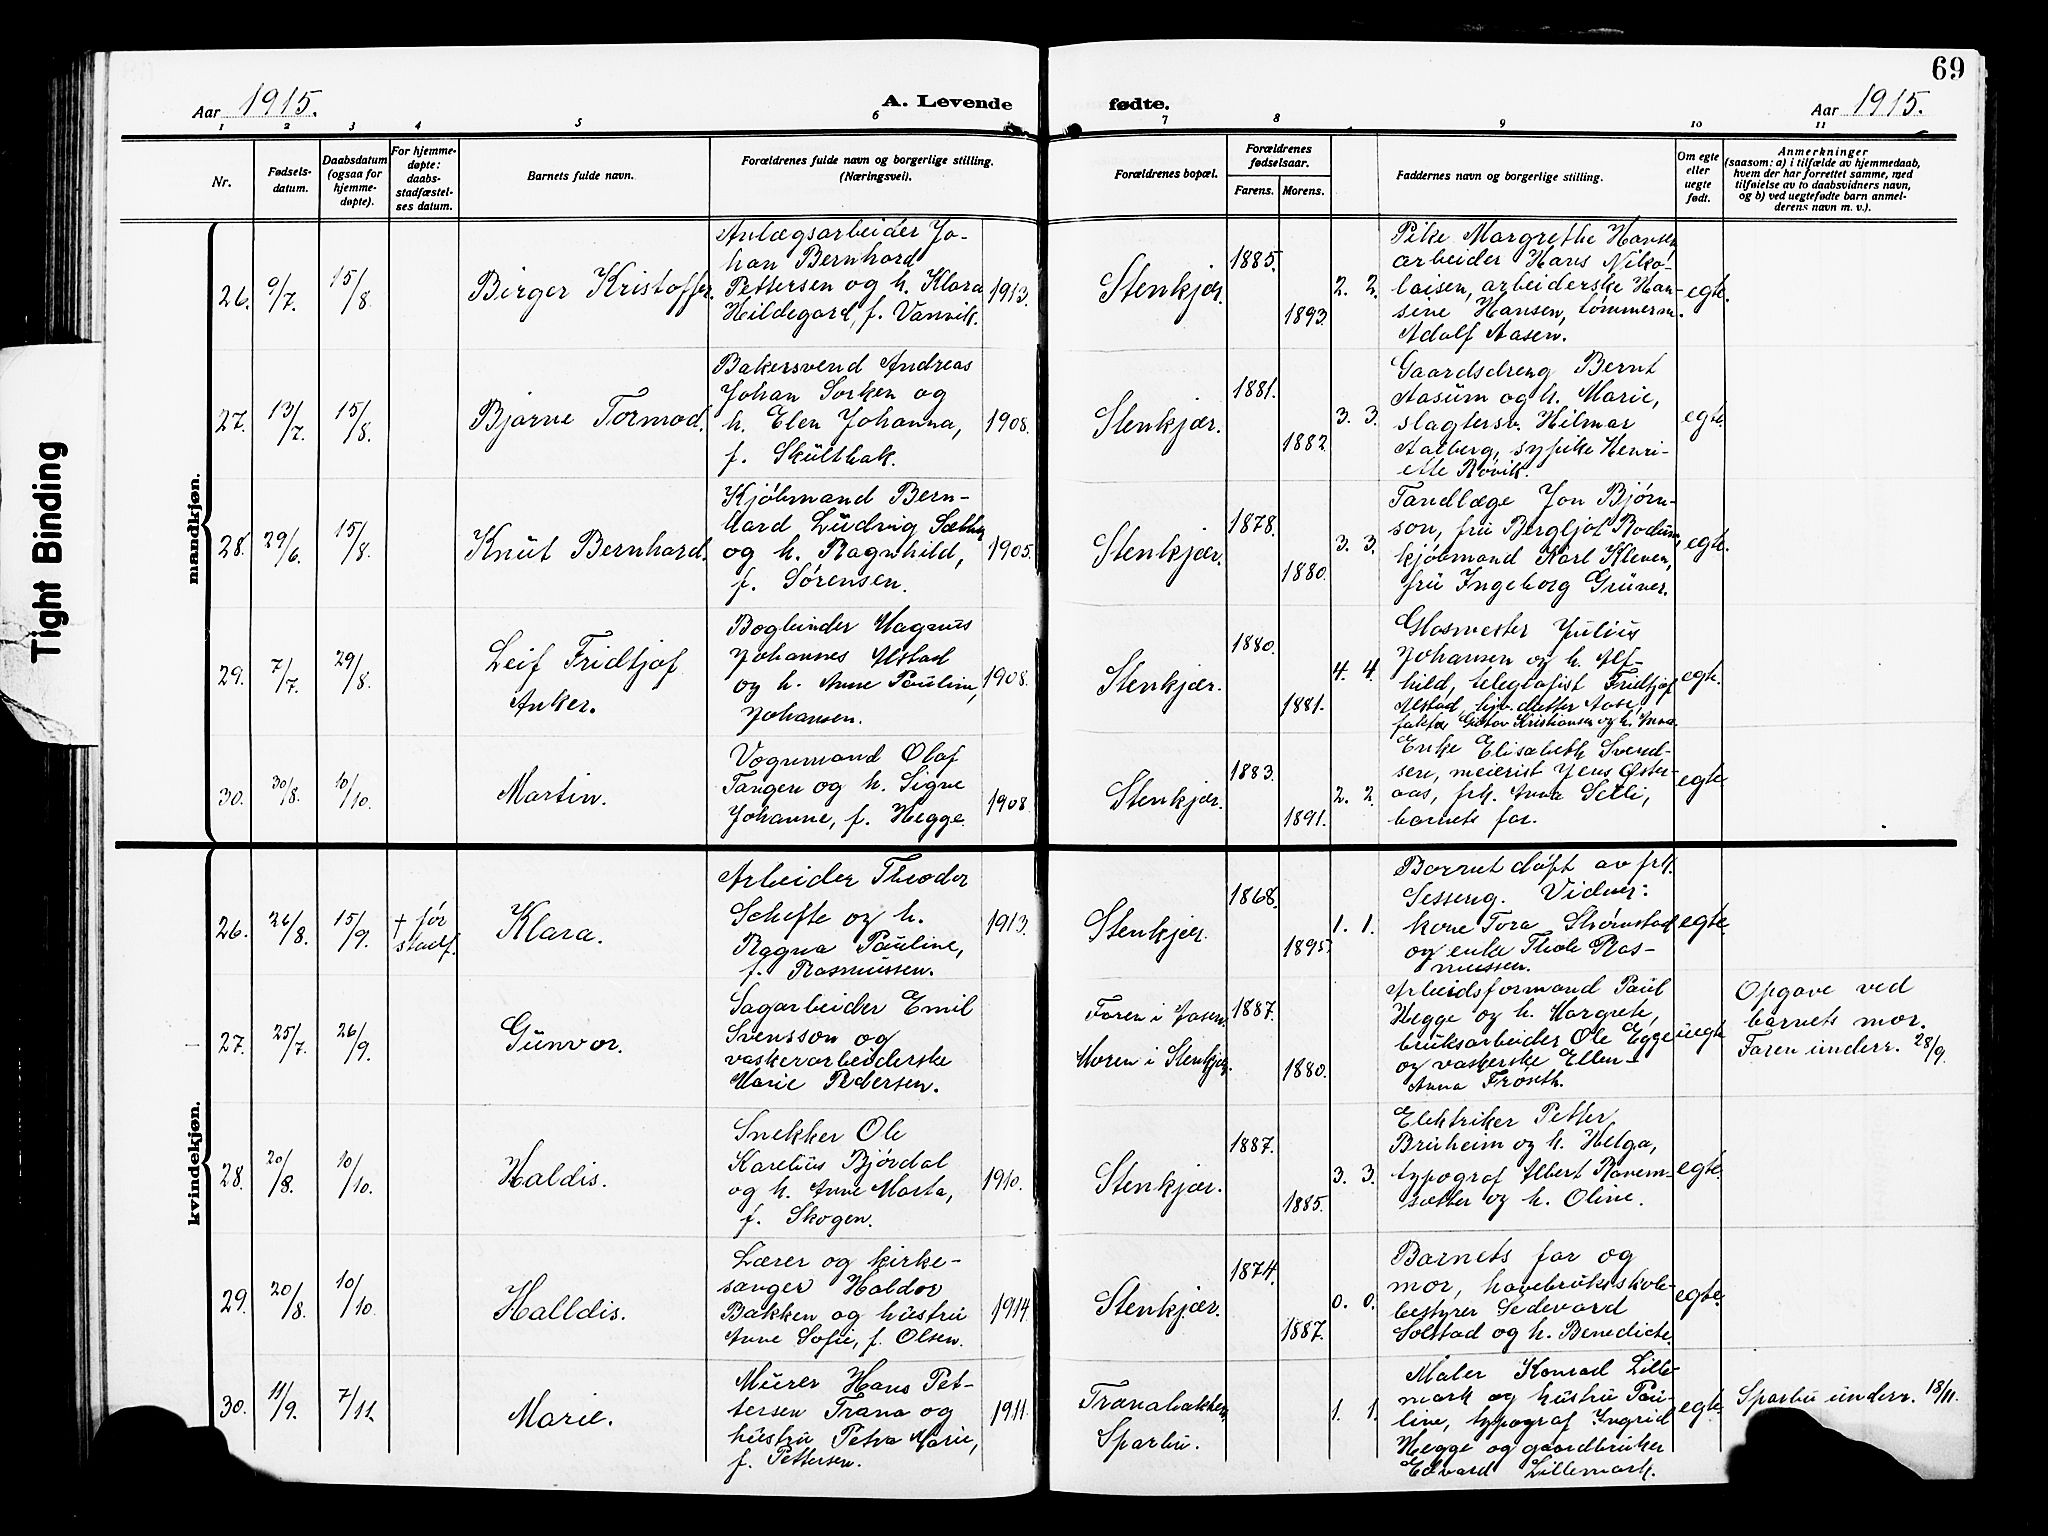 69
Aar 1915.
A. Levende fødte.
Aar 1915.
1 2 3 4 5 6 7 8 9 10 11
Nr.
Fødsels-
datum.
Daabsdatum
(ogsaa for
hjemme-
døpte).
For hjemme-
døpte:
daabs-
stadfæstel-
ses datum.
Barnets fulde navn.
Forældrenes fulde navn og borgerlige stilling.
(Næringsvei).
Forældrenes bopæl.
Forældrenes
fødselsaar.
Farens. Morens.
Faddernes navn og borgerlige stilling.
Om egte
eller
uegte
født.
Anmerkninger
(saasom: a) i tilfælde av hjemmedaab,
hvem der har forrettet samme, med
tilføielse av to daabsvidners navn,
og b) ved uegtefødte barn anmel-
derens navn m. v.).
Tight Binding
mandkjøn.
26. 9/7. 15/8. Birger Kristoffer.
Anlægsarbeider Jo-
han Bernhard
Pettersen og h. Klara
Hildegard, f. Vanvik.
1913.
Stenkjær.
1885.
1893.
2. 2.
Pike Margrethe Hansen,
arbeider Hans Niko-
laisen, arbeiderske Han-
sine Hansen, tømmerm.
Adolf Aasen.
egte.
27. 13/7. 15/8. Bjarne Tormod.
Bakersvend Andreas
Johan Sorken og
h. Elen Johanna,
f. Skultbak.
1908.
Stenkjær.
1881.
1882.
3. 3.
Gaardsdreng Bernt
Aasum og h. Marie,
slagtersv. Hilmar
Aalberg, sypike Henri-
ette Røvik.
egte.
28. 29/6. 15/8. Knut Bernhard.
Kjøbmand Bern-
hard Ludvig Sæther
og h. Ragnhild,
f. Sørensen.
1905.
Stenkjær.
1878.
1880.
3. 3.
Tandlæge Jon Bjørn-
son, fru Bergljot Rodum,
kjøbmand Karl Kleven,
fru Ingeborg Grüner.
egte.
29. 7/7. 29/8. Leif Fridtjof
Anker.
Bogbinder Magnus
Johannes Alstad
og h. Anne Pauline,
Johansen.
1908.
Stenkjær.
1880.
1881.
4. 4.
Glasmester Julius
Johansen og h. Alf-
hild, telegrafist Fridtjof
Alstad, hjv. datter Aase,
faktor Gustav Kristiansen og h. Inga.
egte.
30. 30/8. 10/10. Martin.
Vognmand Olaf
Tangen og h. Signe
Johanne, f. Hegge.
1908
Stenkjær.
1883.
1891.
2. 2.
Enke Elisabeth Svend-
sen, meierist Jens Øster-
aas, frk. Anna Selli,
barnets far.
egte.
kvindekjøn.
26. 26/8. 15/9. † før
stadf.
Klara.
Arbeider Theodor
Schefte og h.
Ragna Pauline,
f. Rasmussen.
1913.
Stenkjær.
1868.
1895.
1. 1.
Barnet døpt av frk.
Sesseng. Vidner:
kone Tora Strømstad
og enke Thale Ras-
mussen.
egte.
27. 25/7. 26/9. Gunvor.
Sagarbeider Emil
Svensson og
vaskeriarbeiderske
Marie Pedersen.
Faren i Aasen.
Moren i Stenkjær.
1887.
1880.
Arbeidsformand Paul
Hegge og h. Margrete,
bruksarbeider Ole Egge
og vaskerske Ellen-
Anna Troseth.
uegte
Opgave ved
barnets mor.
Faren underr. 28/9.
28. 20/8. 10/10. Haldis.
Snekker Ole
Karelius Bjørdal
og h. Anne Marta,
f. Skogen.
1910.
Stenkjær.
1887.
1885.
3. 3.
Elektriker Petter
Bruheim og h. Helga,
typograf Albert Ranem-
sætter og h. Oline.
egte.
29. 20/8. 10/10. Halldis.
Lærer og kirke-
sanger Haldor
Bakken og hustru
Anne Sofie, f. Olsen.
1914.
Stenkjær.
1874.
1887.
0. 0.
Barnets far og
mor, havebruksskole-
bestyrer Sedevard
Solstad og h. Benedicte.
egte.
30. 11/9. 7/11. Marie.
Murer Hans Pet-
tersen Trana og
hustru Petra Marie,
f. Pettersen.
1911.
Tranabakken,
Sparbu.
1. 1.
Maler Konrad Lille-
mark og hustru Pau-
line, typograf Ingrid
Hegge og gaardbruker
Edvard Lillemark.
egte.
Sparbu underr. 18/11.